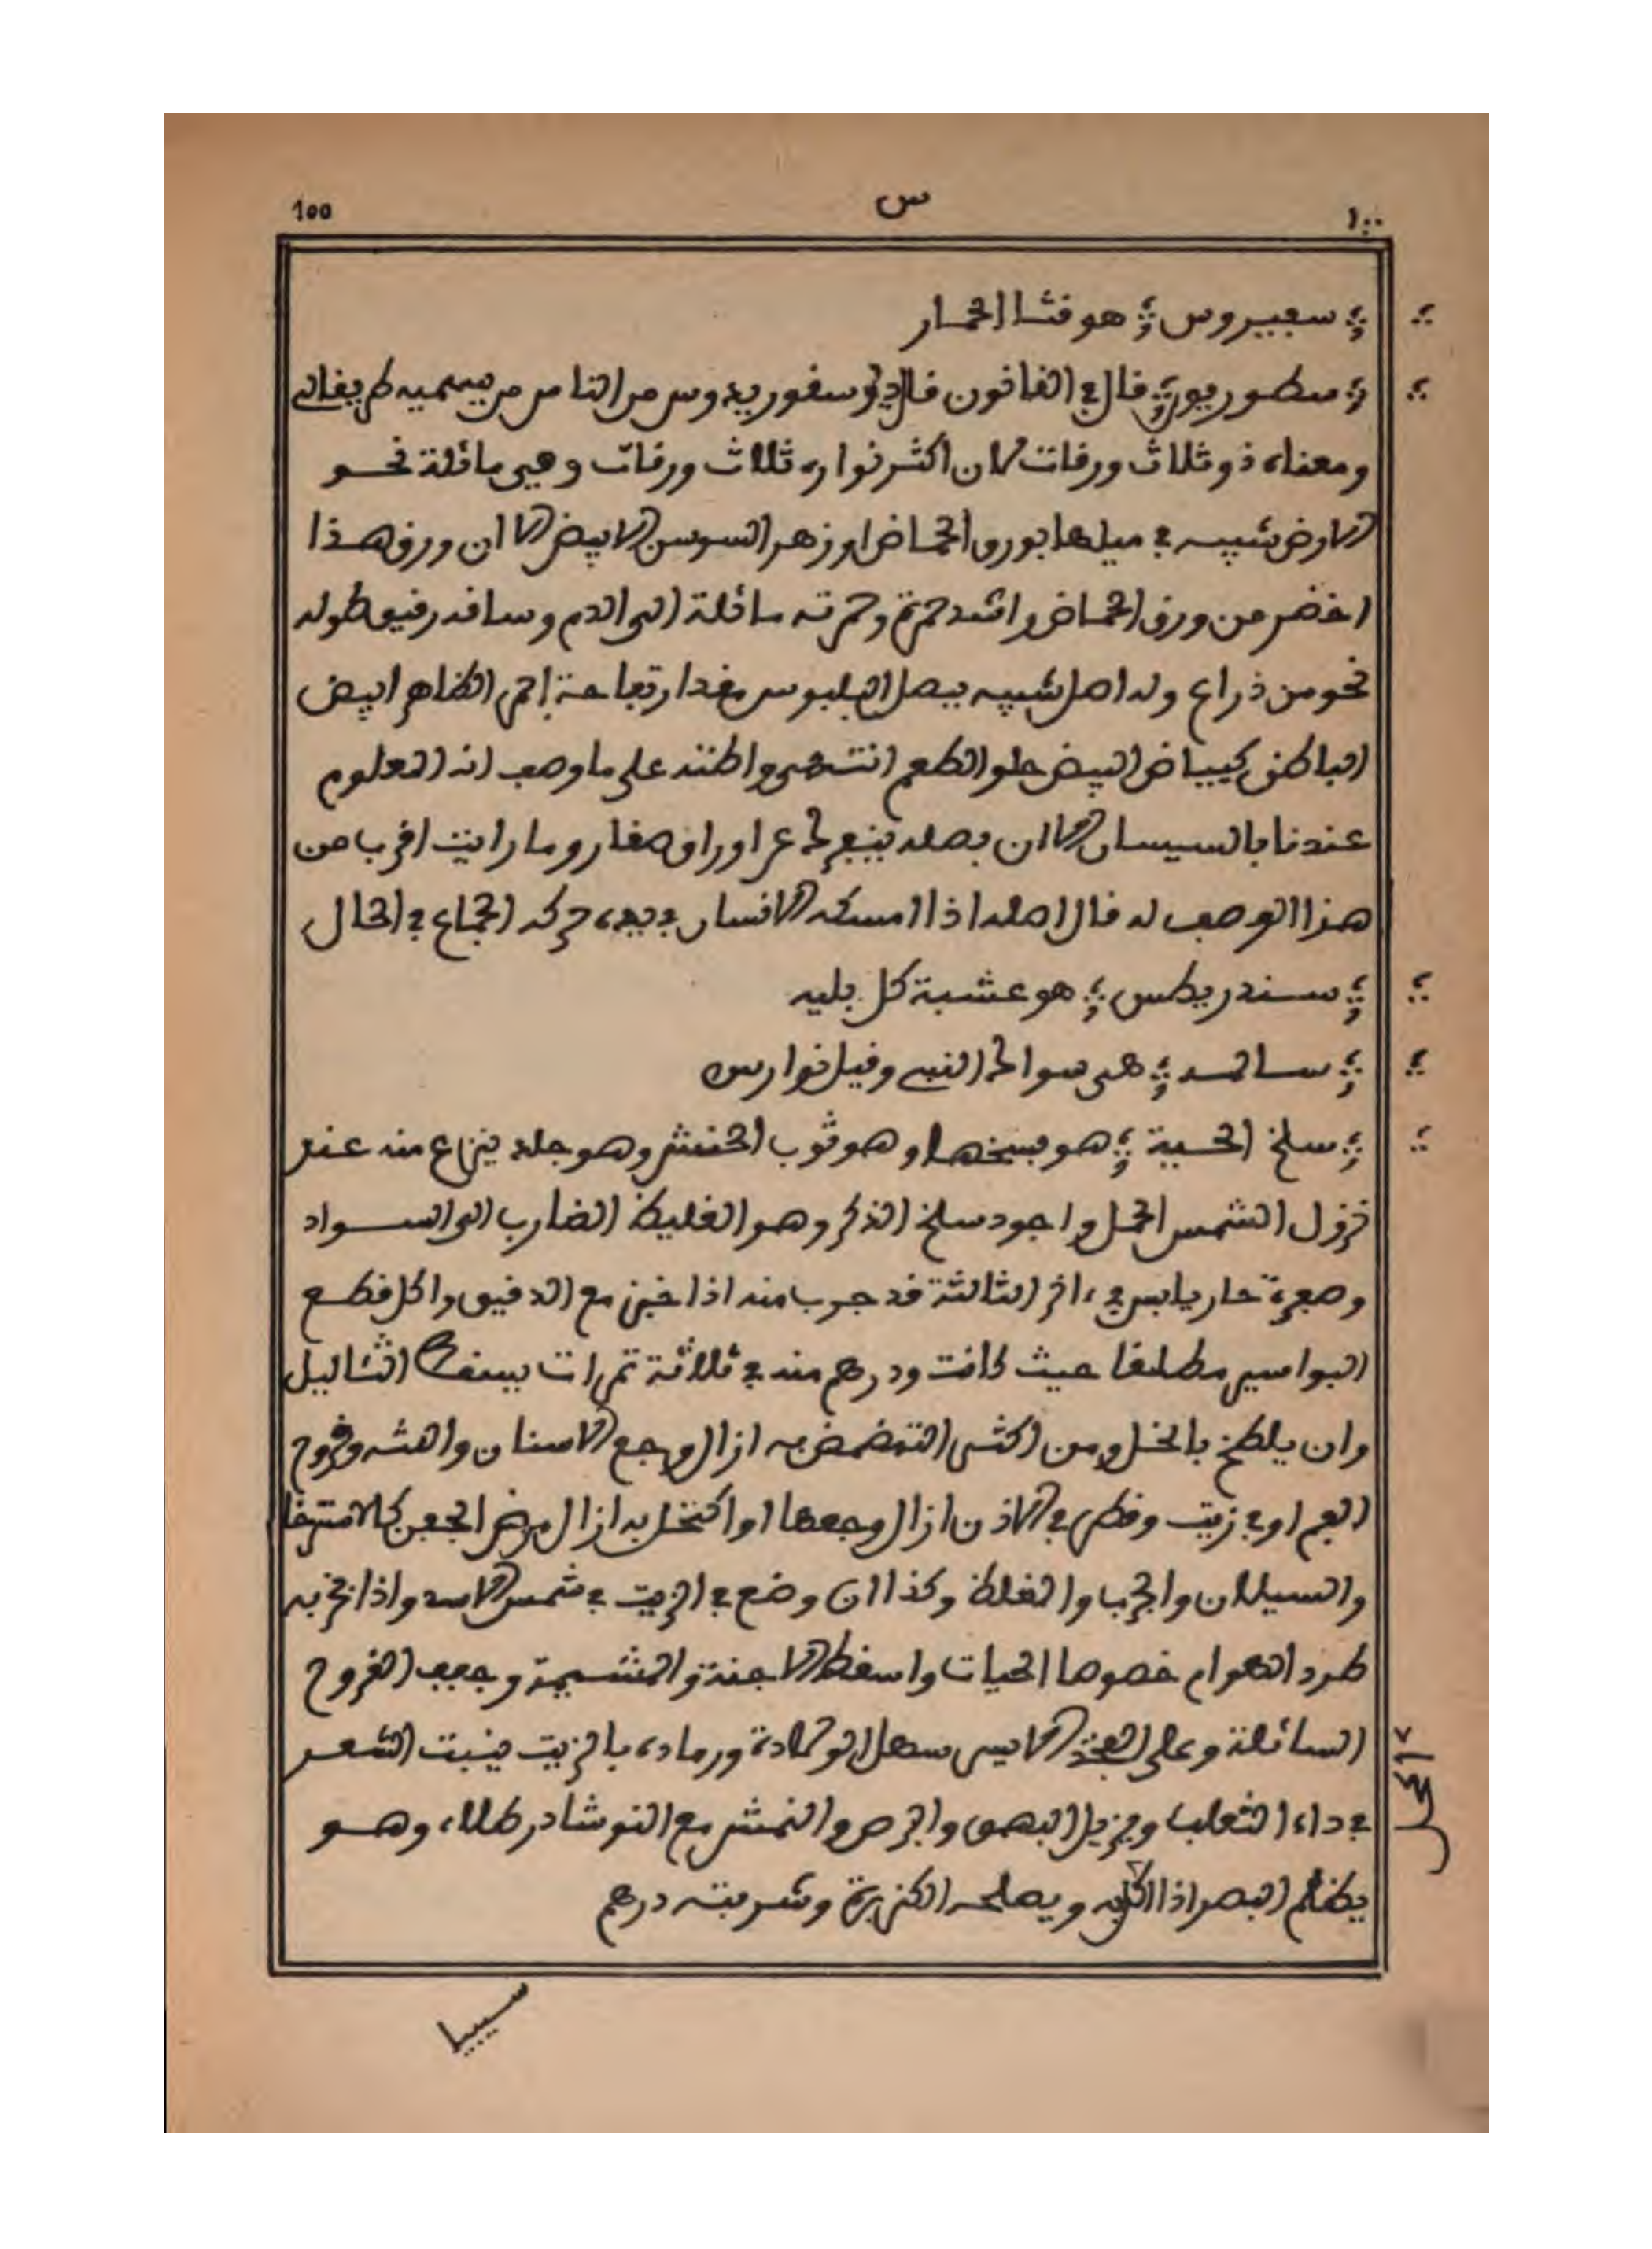 100 س ١٠٠
سعيبروس هو قثا الحمار
سطوريون قال في القانون قال ديوسقوريدوس من الناس من يسميه طريفلن
ومعناه ذو ثلاث ورقات لان اكثر نواره ثلاث ورقات وهي مائلة نحو
الارض شبيه في ميلها بورق الحماض او زهر السوسن الابيض الا ان ورق هذا
اخضر من ورق الحماض واشد حمرة وحمرته مائلة الى الدم وساقه رقيق طوله
نحو من ذراع وله اصل شبيه ببصل البلبوس مقدار تفاحة احمر الظاهر ابيض
الباطن كبياض البيض حلو الطعم انتهى واظنه على ما وصف انه المعلوم
عندنا بالسيسان الا ان بصله اوراق صغار وما رايت اقرب من
هذا الوصف له قال اصله اذا امسكه الانسان في يده حركه الجماع في الحال
سندريطس هو عشبة كل بليه
سالمه هي سوالح النبي وقيل نوارس
سلخ الحية هو سبخها وهو ثوب الحنش وهو جلد ينزاع منه عند
نزول الشمس الحمل واجود سلخ الذكر وهو الغليظ الضارب الى السواد
وصفرة حار يابس في ءاخر الثالثة قد جرب منه اذا خبز مع الدقيق واكل قطع
البواسير مطلقا حيث كانت ودرهم منه في ثلاثة تمرات يسقط الثئاليل
وان يطبخ بالخل ومن اكثر التمضمض به ازال وجع الاسنان واللثه وقروح
الفم او في زيت وقطر في الاذن ازال وجعها او اكتحل به ازال مرض الجفن كالاسترخا
والسيلان والجرب والغلظ وكذا ان وضع في الزيت في شمس الاسد واذا بخر به
طرد الهوام خصوصا الحيات واسقط الاجنة والمشيمة وجفف القروح
السائلة وعلى الفخذ الايسر سهل الولادة ورماده بالزيت ينبت الشعر
في داء الثعلب ويزيل البهق والبرص والنمش مع النوشادر طلاء وهو
يظلم البصر اذا اكل به ويصلحه الكزبرة وشربته درهم
اكحل
سيبيا